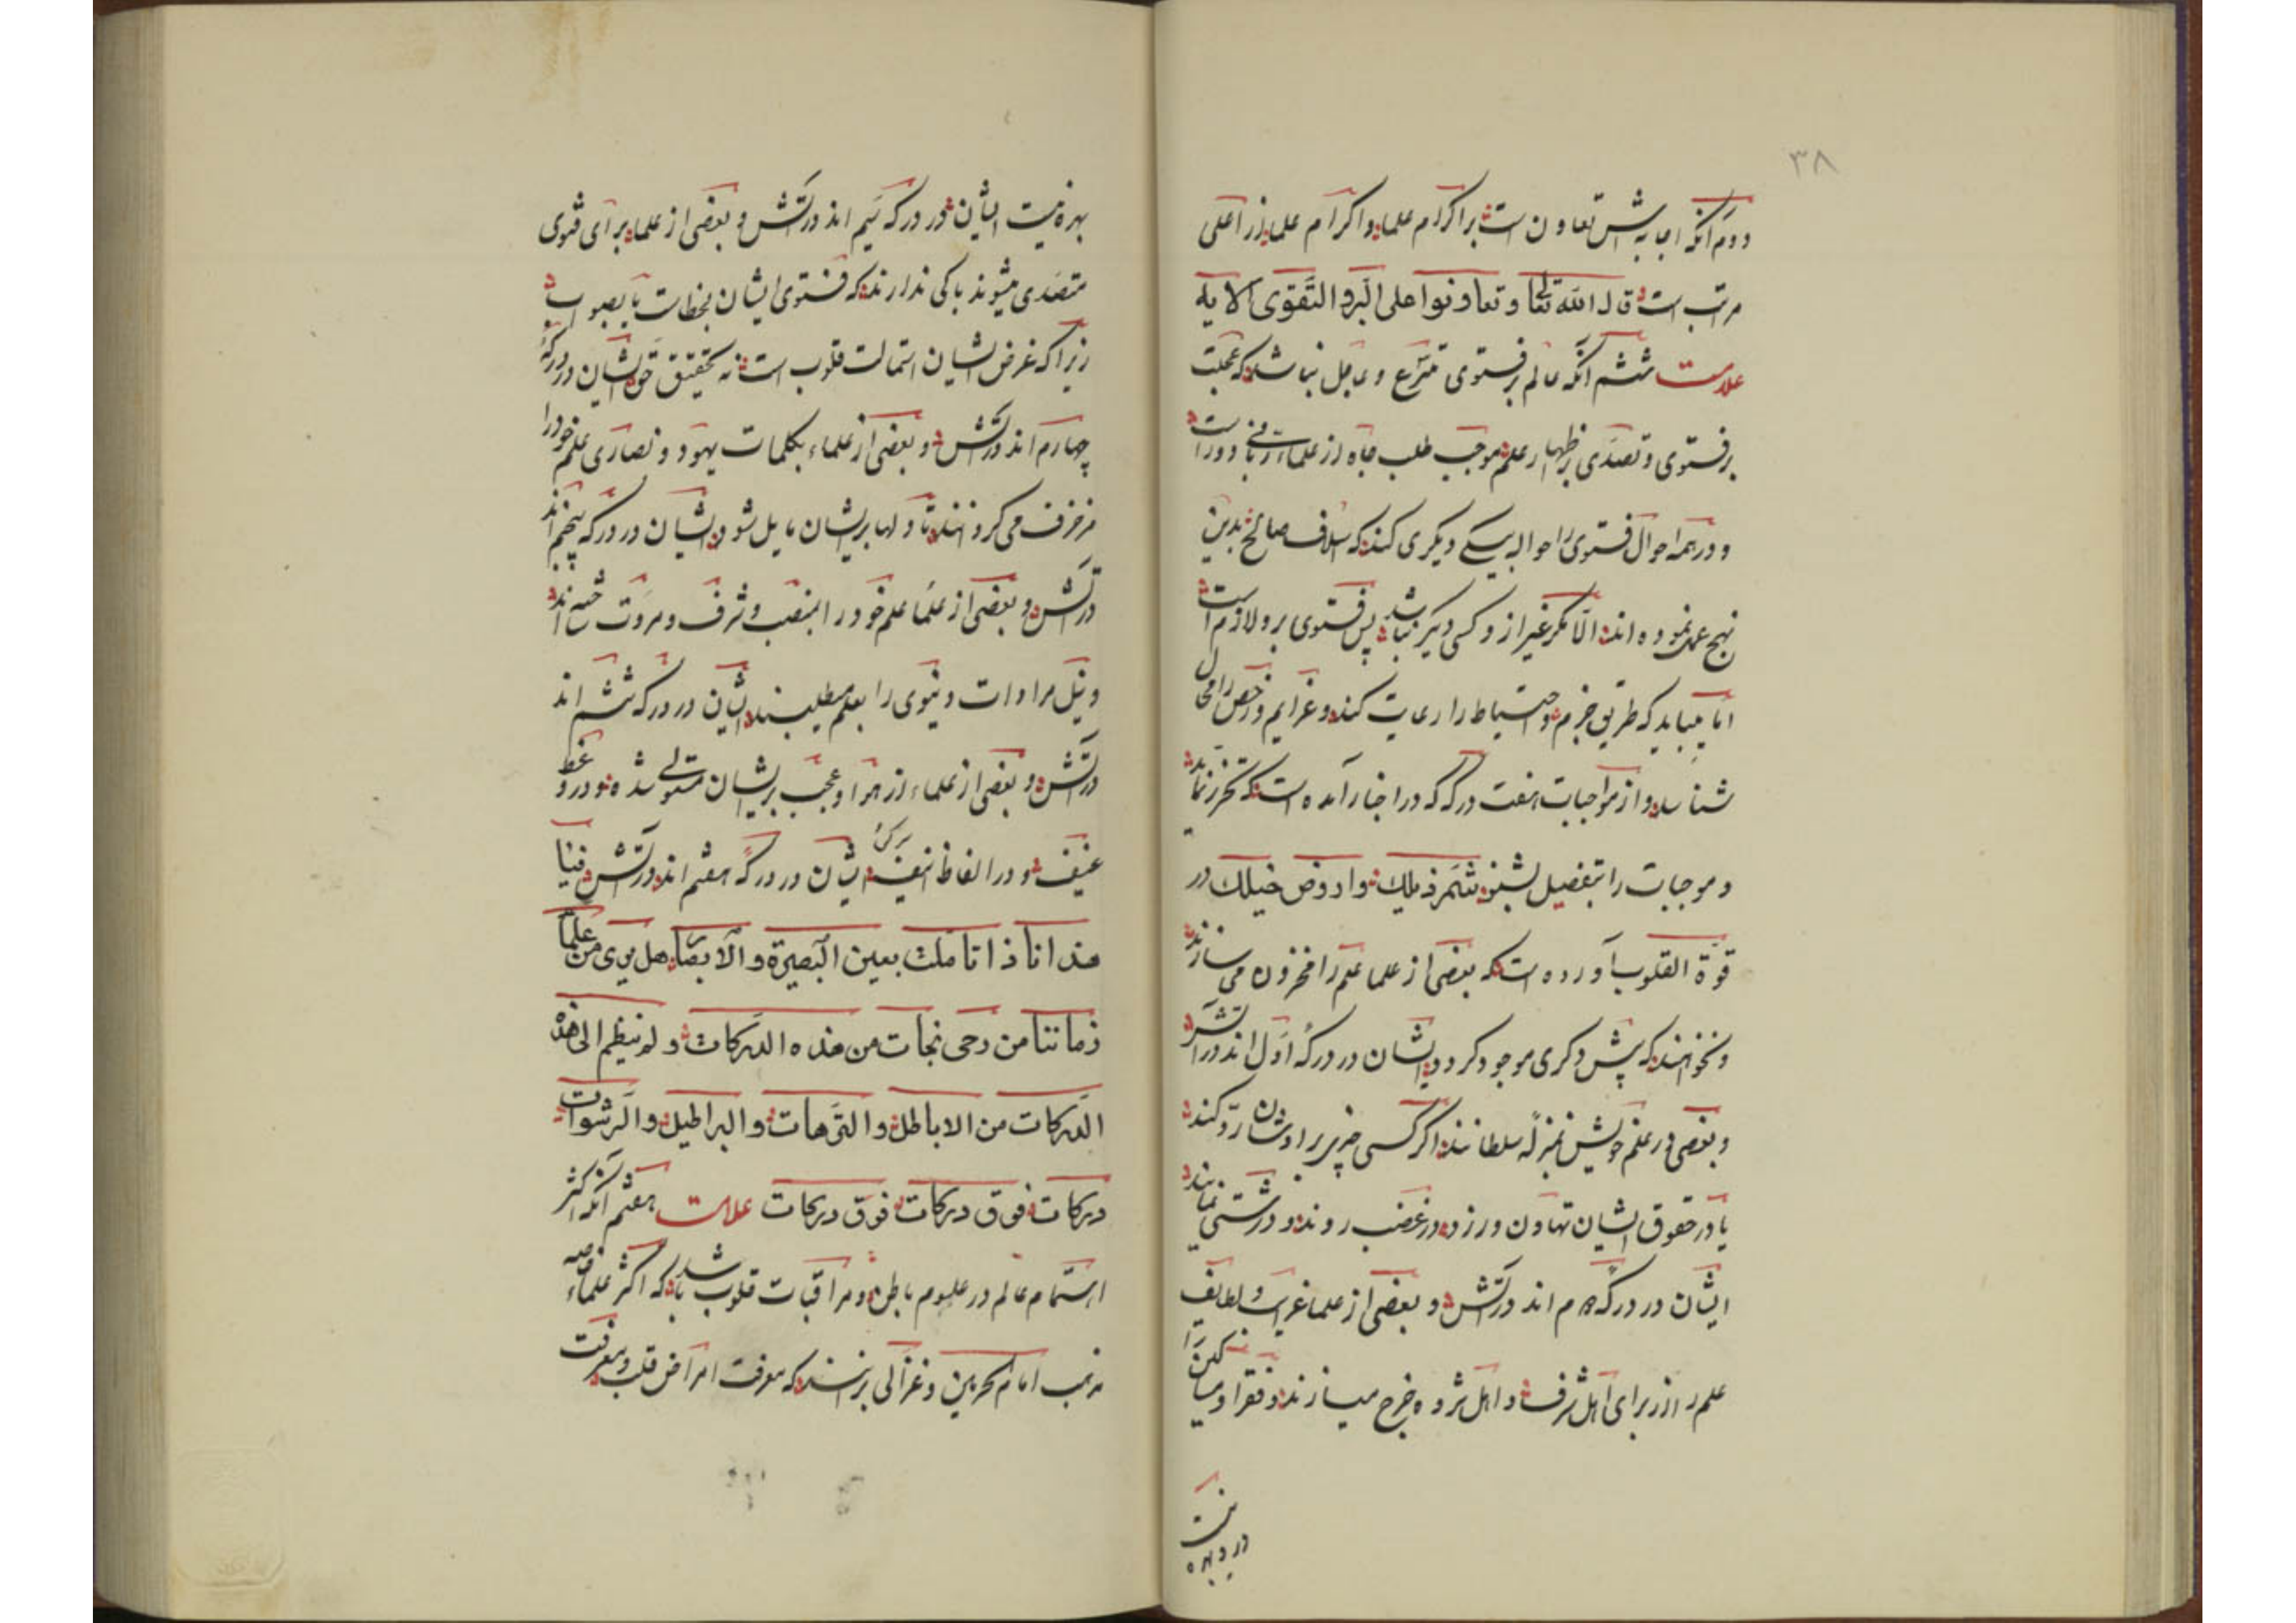 ۳۸
دوم آنکه اجابتش تعاون است بر اکرام علما و اکرام علما از اعلی
مراتب است قال الله تعالی و تعاونوا علی البر و التقوی الایه
علامت ششم آنکه عالم بر فتوی متسرع و عاجل نباشد که عجلت
بر فتوی و تصدی بر اظهار علم موجب طلب جاه از علماء ربانی دور است
و در همه احوال فتوی را حواله بیکی دیگری کند که اسلاف صالح بدین
نهج عمل نموده اند الا مگر غیر از و کسی دیگر نباشد پس فتوی برو لازم است
اما میباید که طریق حزم و احتیاط را رعایت کند و عزایم و رخص را محال
شناسد و از مواجبات هفت درکه که در اخبار آمده است که تحرز نماید
و موجبات را بتفصیل بشنو شمر ذیلک و ادوض خیلک در
قوة القلوب آورده است که بعضی از علما علم را مخزون می سازند
و نخواهند که پیش دگری موجود گردد ایشان در درکۀ اول اند در آتش
و بعضی در علم خویش بمنزلۀ سلطانند اگر کسی چیزی برادشان رد کند
یا در حقوق ایشان تهاون ورزد در غضب روند و درشتی نمایند
ایشان در درکۀ دوم اند در آتش و بعضی از علما غرایب و لطایف
علم را از برای اهل شرف و اهل ثروه خرج میسازند و فقرا و مساکین را
در و بهره نیست
بهره نیست ایشان در درکه سیم اند در آتش و بعضی از علما برای فتوی
متصدی میشوند باکی ندارند که فتوی ایشان بخطاست یا بصواب
زیرا که غرض ایشان استمالت قلوب است نه تحقیق حق ایشان در درکۀ
چهارم اند در آتش و بعضی از علماء بکلمات یهود و نصاری علم خود را
مزخرف می گردانند تا دلها بر ایشان مایل شود ایشان در درکه پنجم اند
در آتش و بعضی از علما علم خود را بمنصب و شرف و مروت اند
و نیل مرادات دنیوی را بعلم میطلبند ایشان در درکه ششم اند
در آتش و بعضی از علماء از هوا و عجب بر ایشان مستولی شده بود در وعظ
عنیف و در الفاظ انیف ایشان در درکۀ هفتم اند در آتش فیا
هذا انا ذا تاملت بعین البصیرة و الابصار هل یری من علما
زماننا من رحی نجات من هذه الدرکات و لم ینظم الی هذه
الدرکات من الاباطل و الترهات و البراطیل و الرشوات
درکات فوق درکات فوق درکات علامت هفتم آنکه اکثر
اهتمام عالم در علوم باطن و مراقبات قلوب باشد که اکثر علماء
مذهب امام الحرمین و غزالی برانند که معرفت امراض قلب و معرفت